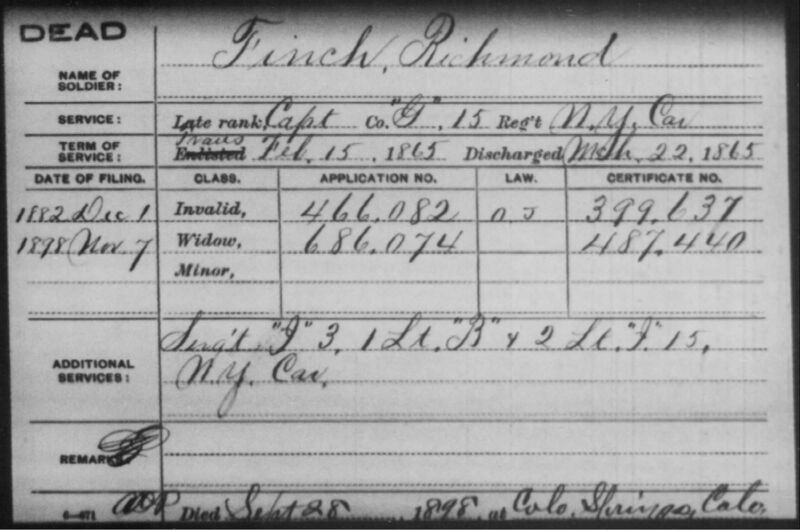 DEAD
Finch, Richmond
NAME OF SOLDIER:
SERVICE: Late rank, Capt Co. "G", 15 Reg't N.Y. Cav
TERM OF SERVICE: Trans Enlisted Feb. 15, 1865 Discharged Mch. 22, 1865
DATE OF FILING. CLASS. APPLICATION NO. LAW. CERTIFICATE NO.
1882 Dec 1 Invalid, 466.082 O J 399.637
1898 Nov. 7 Widow, 686.074 487.440
Minor,
ADDITIONAL SERVICES: Serg't "I" 3, 1 Lt. "B" & 2 Lt. "I" 15,
N.Y. Cav.
REMARKS:
6-471 Died Sept 28 1898, at Colo. Springs, Colo.